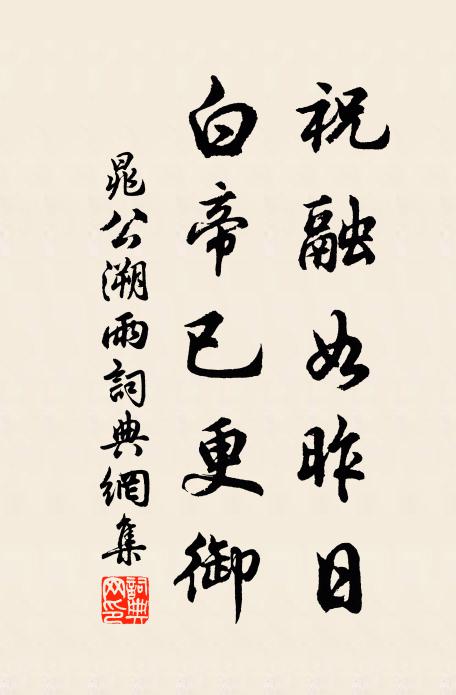 祝融如昨日
白帝已更御
晁公溯雨詞典網集
詞典
网印